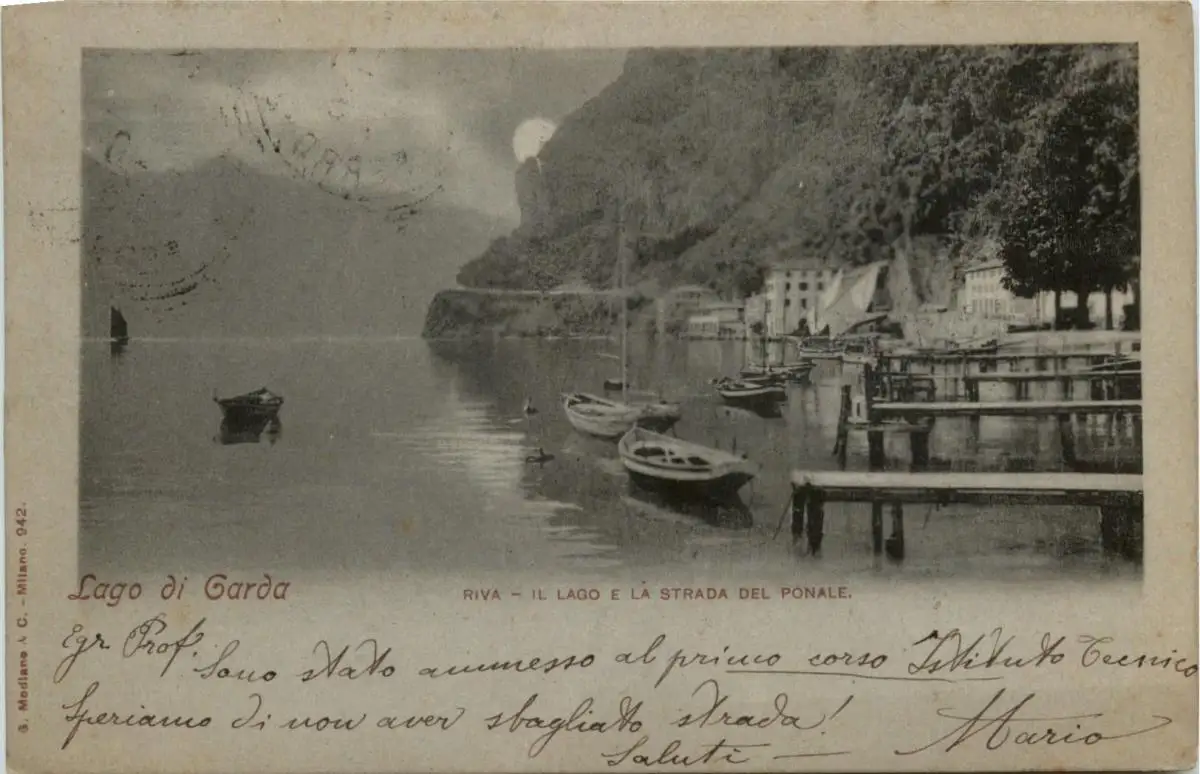 Lago di Garda
RIVA – IL LAGO E LA STRADA DEL PONALE.
G. Modiano & C. – Milano. 942.
Egr. Prof. Sono stato ammesso al primo corso Istituto Tecnico
Speriamo di non aver sbagliato strada!
Saluti — Mario